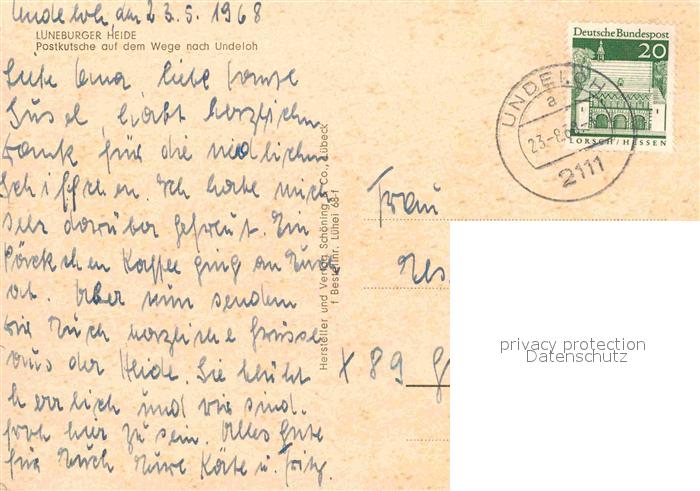 Undeloh, den 23.5.1968
LÜNEBURGER HEIDE
Postkutsche auf dem Wege nach Undeloh
liebe
Susel, habt herzlichen
Dank für die niedlichen
Schiffchen. Ich habe mich
sehr darüber gefreut. Ein
Päckchen Kaffee ging an Euch
ab. Aber nun senden
wir Euch herzliche Grüsse
aus der Heide. Sie blüht
herrlich und wir sind
froh hier zu sein. Alles Gute
für Euch Eure Käte u. Fritz.
Hersteller und Verlag Schöning & Co., Lübeck
f Bestellnr. Lühei 68
Deutsche Bundespost
20
LORSCH/HESSEN
UNDELOH
a
23.-8.68
2111
Frau
X 89
privacy protection
Datenschutz